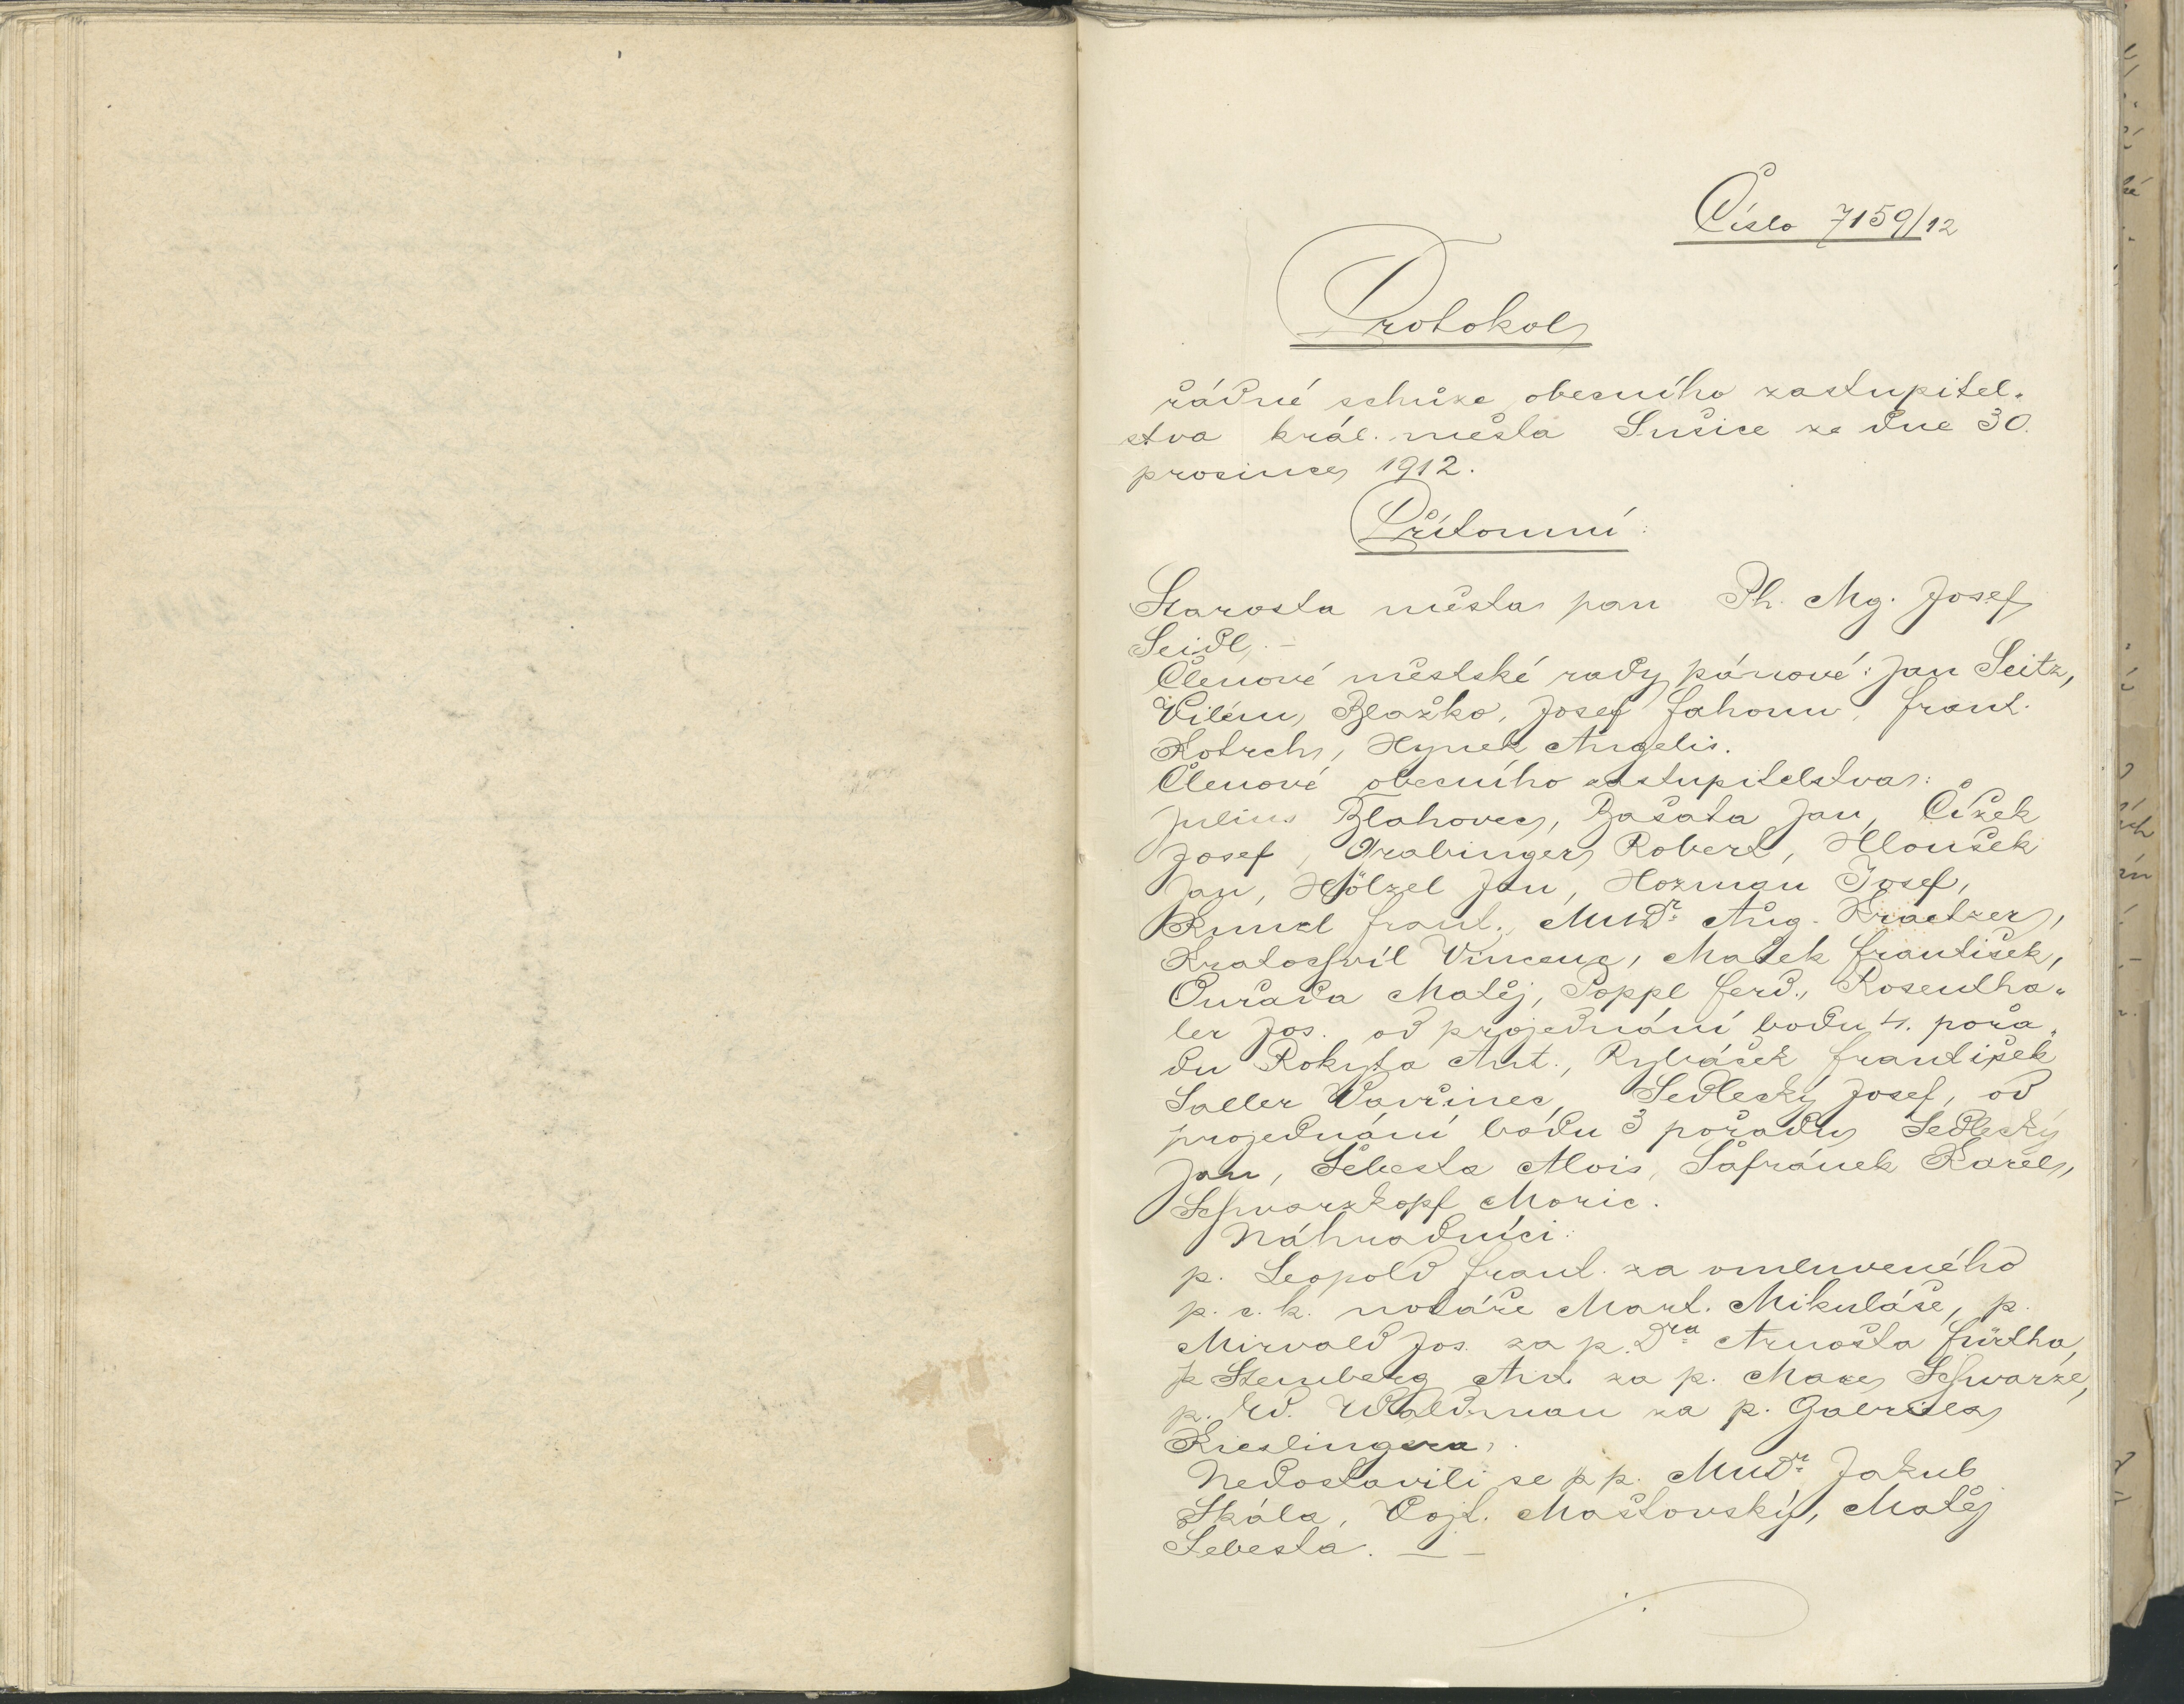 Číslo 7159/12
Protokol
řádné schůze obecního zastupitel-
stva král. města Sušice ze dne 30.
prosince 1912.
Přítomni:
Starosta města pan Ph. Mg. Josef
Seidl. –
Členové městské rady pánové: Jan Seitz,
Vilém Blažko, Josef Jahonn, Frant.
Kotrch, Hynek Angelis.
Členové obecního zastupitelstva:
Julius Blahovec, Bašata Jan, Čížek
Josef, Grabinger Robert, Hloušek
Jan, Hölzel Jan, Hozman Josef,
Kunzl Frant., MUDr. Aug. Kraetzer,
Kratochvíl Vincenc, Mašek František,
Ouřada Matěj, Poppl Ferd., Rosentha-
ler Jos. od projednání bodu 4. pořa-
du Rokyta Ant., Rybáček František
Saller Vavřinec, Sedlecký Josef, od
projednání bodu 3 pořadu Sedlecký
Jan, Šebesta Alois, Šafránek Karel,
Schwarzkopf Moric.
Náhradníci:
p. Leopold Frant. za omluveného
p. c. k. notáře Mart. Mikuláše, p.
Mirvald Jos. za p. Dra Arnošta Fürtha,
p. Sternberg Ant. za p. Maxe Schwarze,
p. Ed. Waldman za p. Gabriela
Kieslingera.
Nedostavili se pp. MUDr. Jakub
Skála, Vojt. Maštovský, Matěj
Šebesta. — –